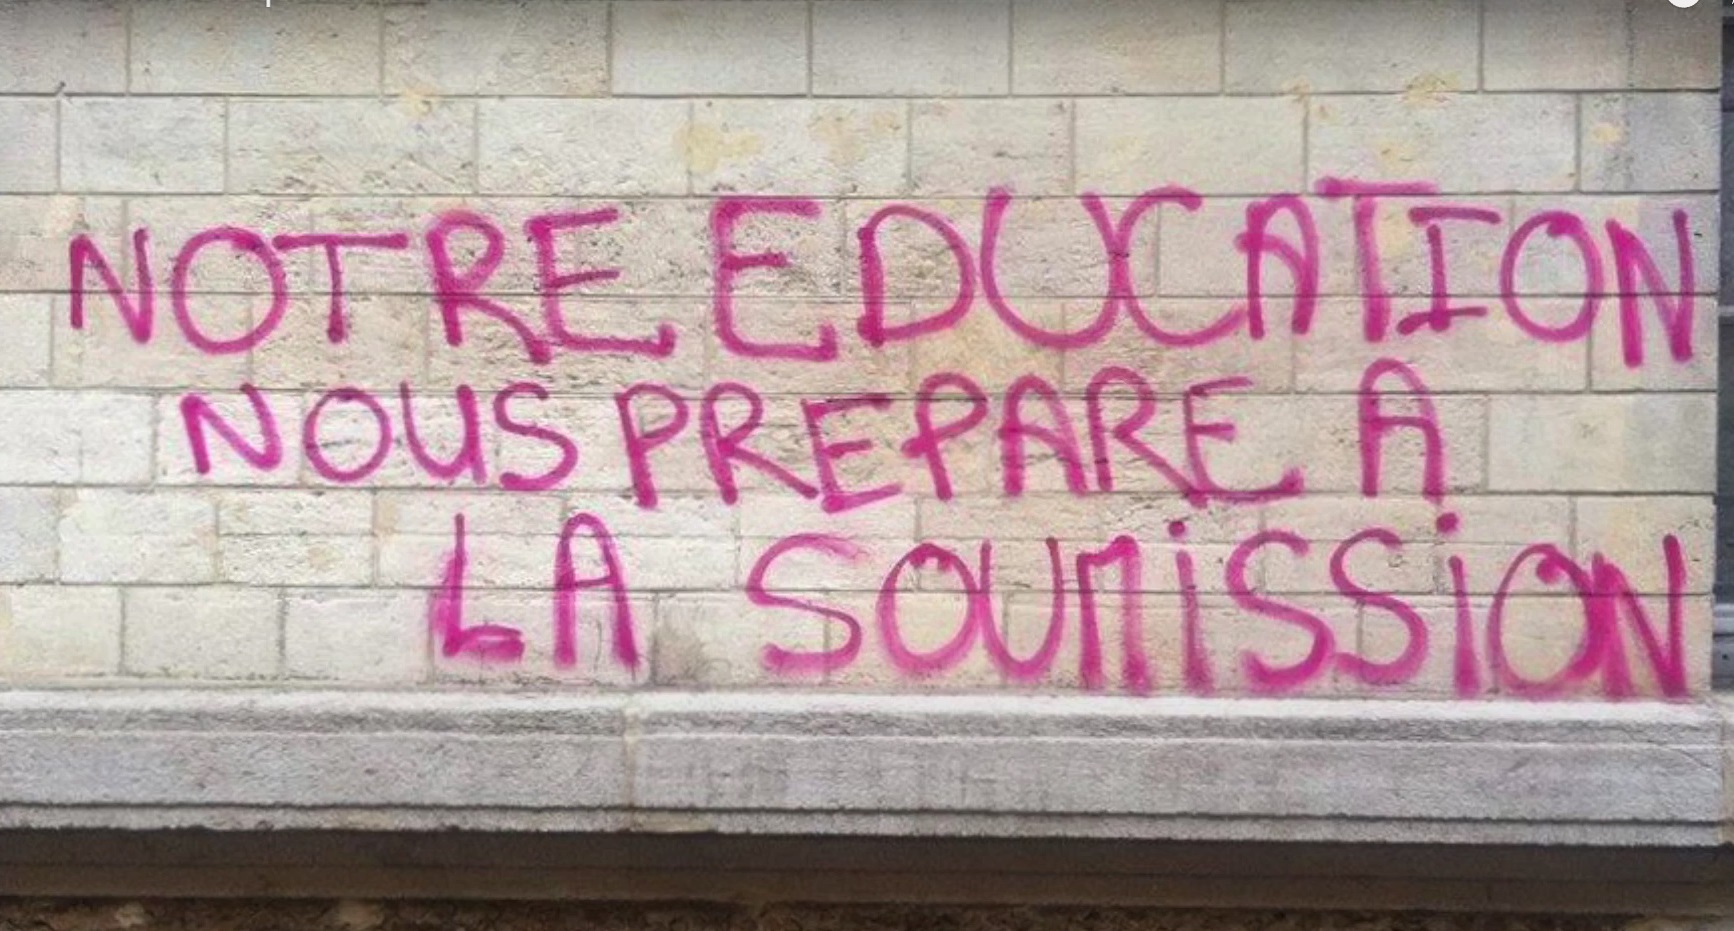 NOTRE EDUCATION
NOUS PREPARE A
LA SOUMiSSiON